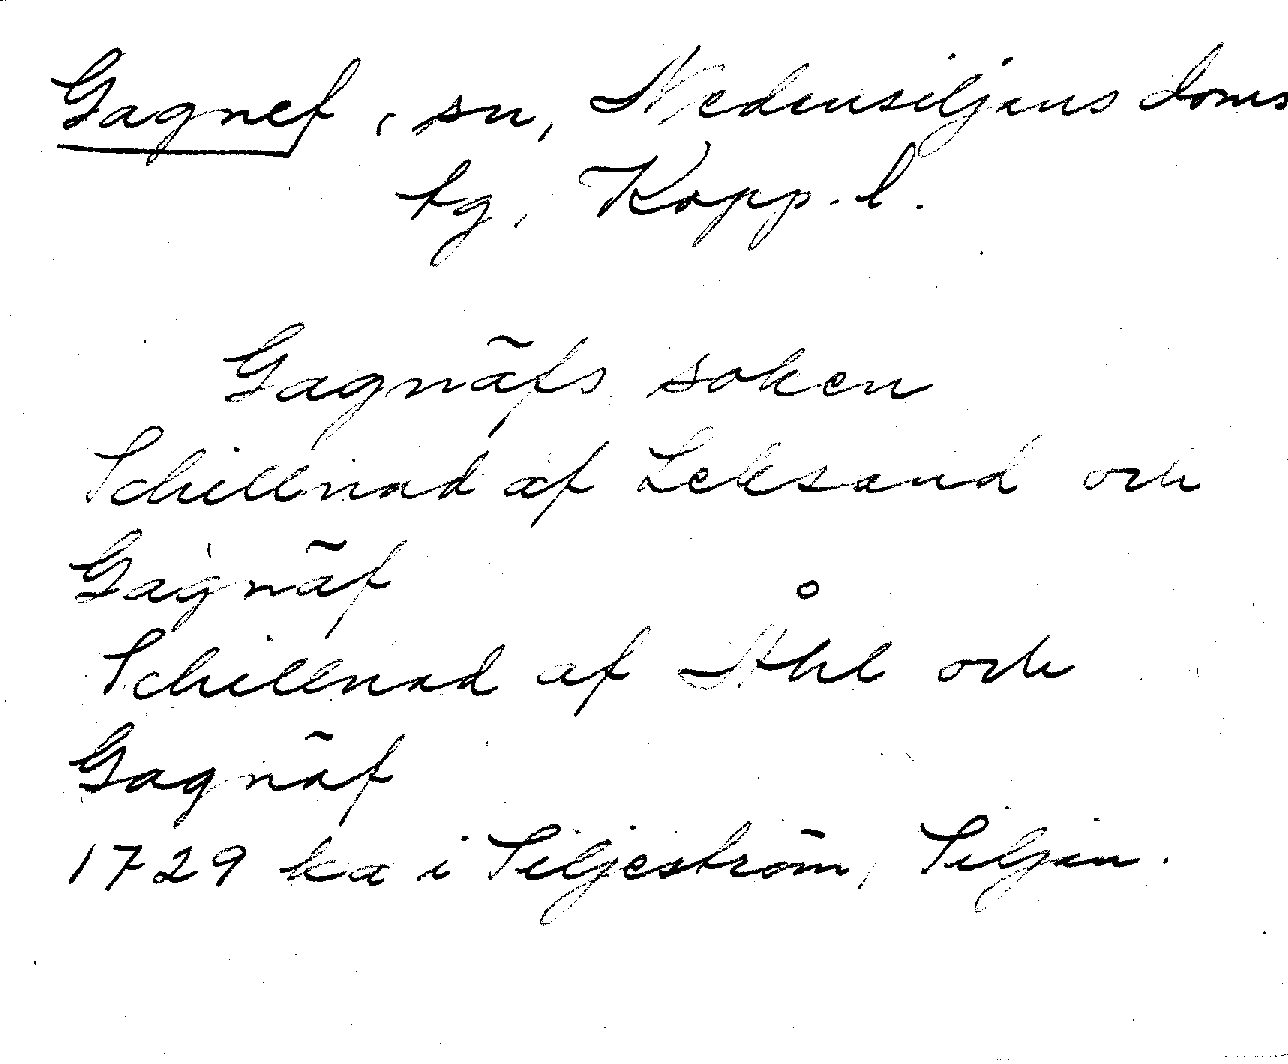 Gagnef, sn, Nedansiljans doms
tg, Kopp. l.
Gagnäfs soken
Schillnad af Leksand och
Gagnäf
Schillnad af Åhl och
Gagnäf
1729 ka i Siljeström, Siljan.